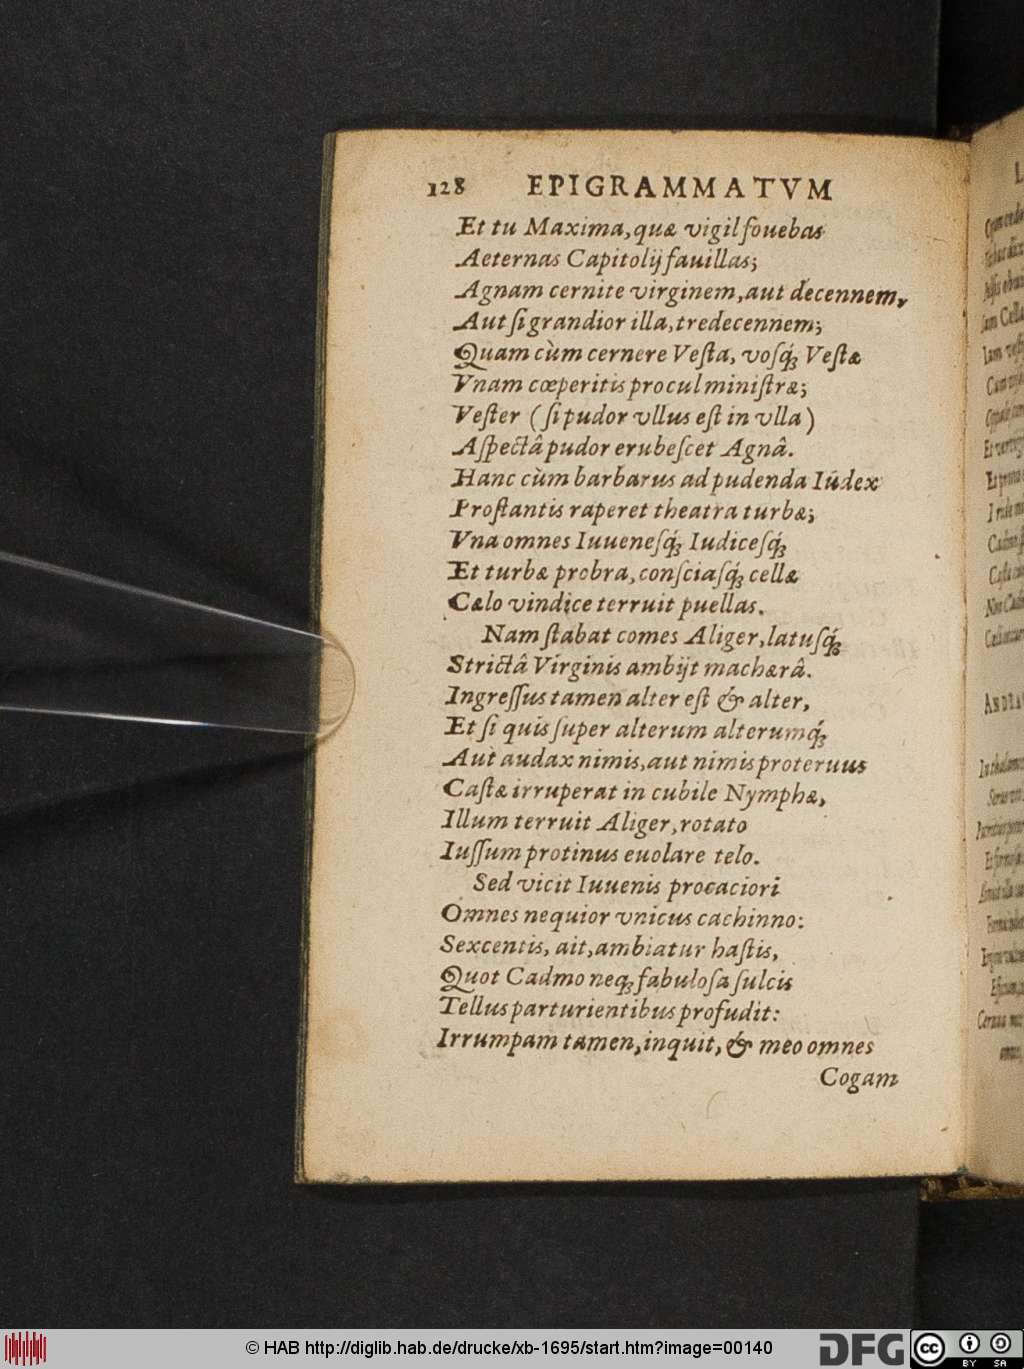 128 EPIGRAMMATVM
Et tu Maxima, quæ vigil fouebas
Aeternas Capitolij fauillas;
Agnam cernite virginem, aut decennem,
Aut ſi grandior illa, tredecennem;
Quam cùm cernere Veſta, voſq́; Veſtæ
Vnam cœperitis procul miniſtræ;
Veſter (ſi pudor vllus eſt in vlla)
Aſpectâ pudor erubeſcet Agnâ.
Hanc cùm barbarus ad pudenda Iudex
Proſtantis raperet theatra turbæ;
Vna omnes Iuueneſq́; Iudiceſq́;
Et turbæ probra, conſciaſq́; cellæ
Cælo vindice terruit puellas.
Nam ſtabat comes Aliger, latuſq́;
Strictâ Virginis ambijt machærâ.
Ingreſſus tamen alter eſt & alter,
Et ſi quis ſuper alterum alterumq́;
Aut audax nimis, aut nimis proteruus
Caſtæ irruperat in cubile Nymphæ,
Illum terruit Aliger, rotato
Iuſſum protinus euolare telo.
Sed vicit Iuuenis procaciori
Omnes nequior vnicus cachinno:
Sexcentis, ait, ambiatur haſtis,
Quot Cadmo neq; fabuloſa ſulcis
Tellus parturientibus profudit:
Irrumpam tamen, inquit, & meo omnes
Cogam
© HAB http://diglib.hab.de/drucke/xb-1695/start.htm?image=00140
DFG
cc
BY SA